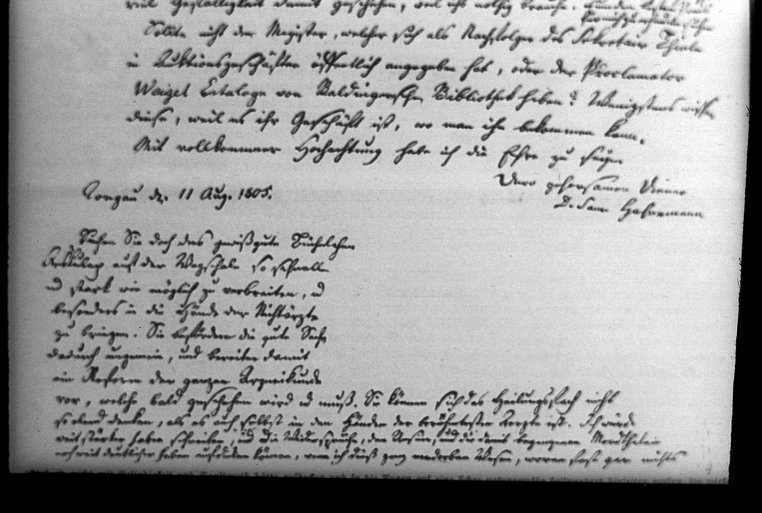 viel Gefälligkeit damit geschehen, weil ich
Sollte nicht der Magister, welcher sich als Nachfolger des Sekretair Thiele
in Auktionsgeschäften öffentlich angegeben hat, oder der Proclamator
Weigel Cataloge von Baldingerschen Bibliothek haben? Wenigstens wissen
diese, weil es ihr Geschäft ist, wo man ihn bekommen kann.
Mit vollkommener Hochachtung habe ich die Ehre zu seyn
Dero gehorsamer Diener
D. Sam. Hahnemann
Torgau d. 11 Aug. 1805.
Suchen Sie doch das gewißgute Büchelchen
Aeskulap auf der Wagschale so schnell
und stark wie möglich zu verbreiten, und
besonders in die Hände der Nichtärzte
zu bringen. Sie befördern die gute Sache
dadurch ungemein, und bereiten damit
eine Reform der ganzen Arzneikunde
vor, welche bald geschehen wird und muß. Sie können sich das Heilungsfach nicht
so elend denken, als es auch selbst in den Händen der berühmtesten Aerzte ist. Ich würde
weit stärker haben schreiben, und die Widersprüche, den Unsinn, und die damit begangenen Mordthaten
noch weit deutlicher haben aufdecken können, wenn ich dieß ganz verdorbene Wesen, woran fast gar nichts